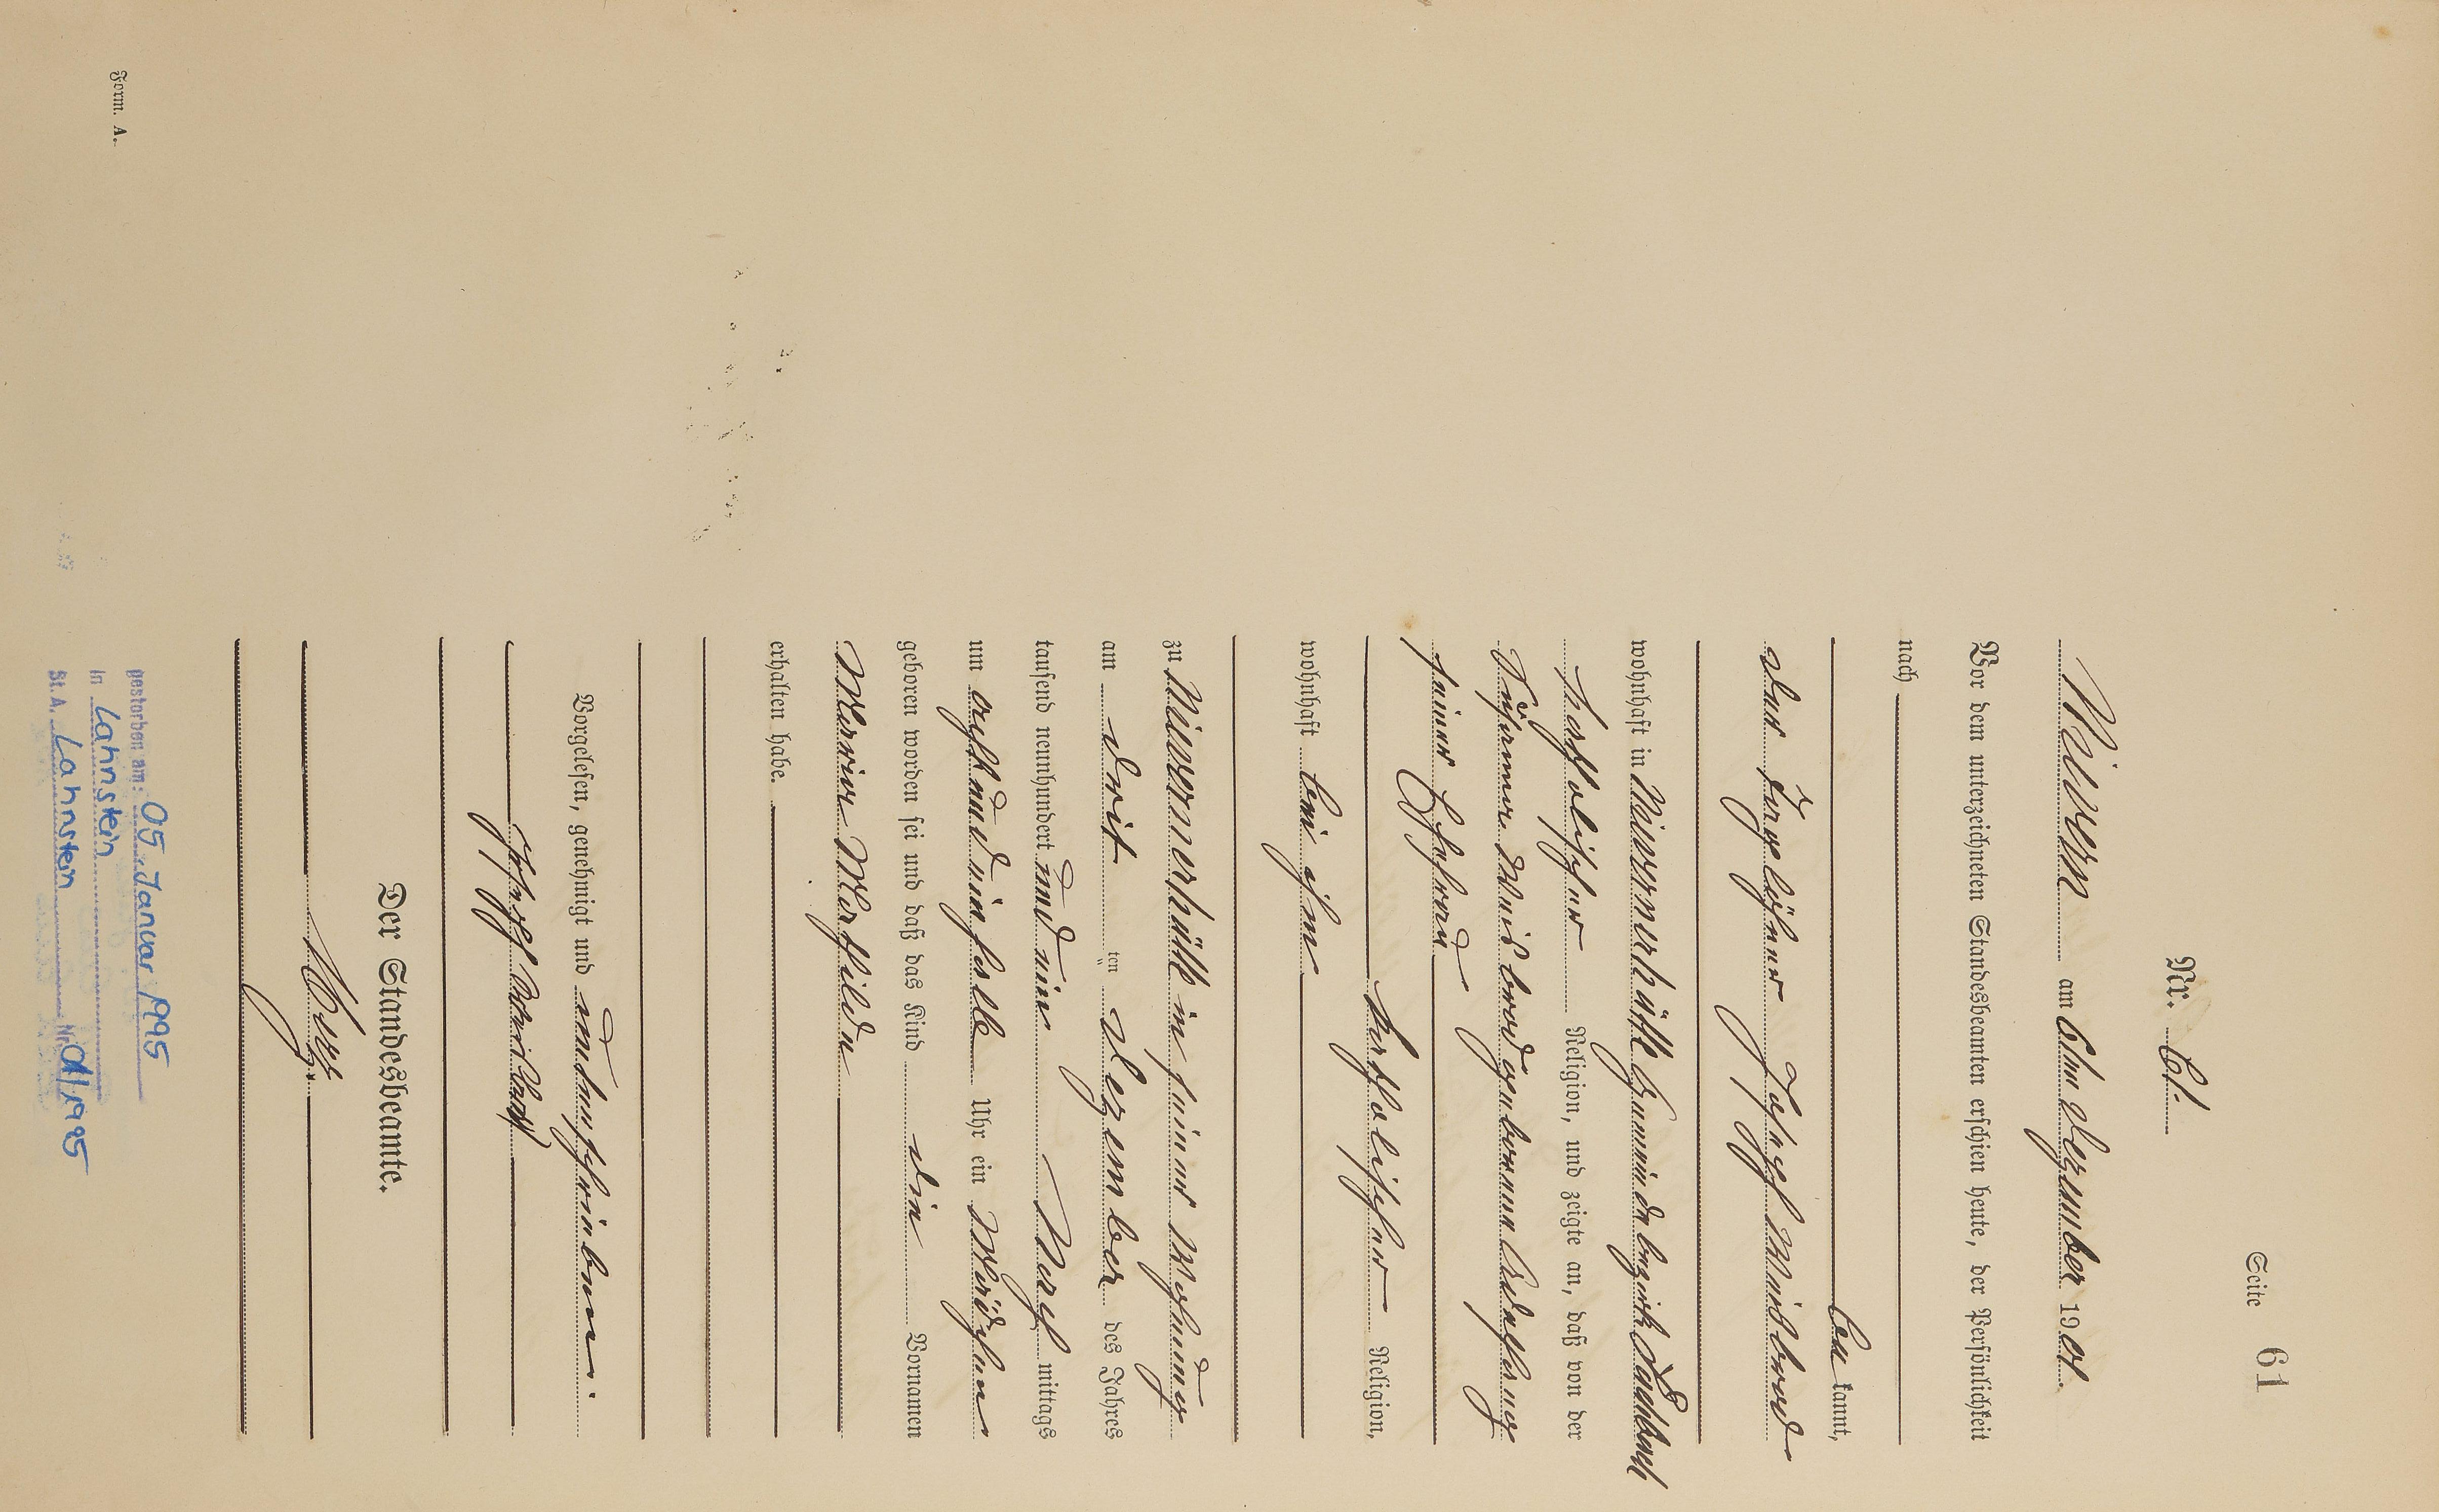 Seite 61
Nr. 61.
Nievern am 6ten Dezember 1901.
Vor dem unterzeichneten Standesbeamten erschien heute, der Persönlichkeit
nach
be kannt,
der Tagelöhner Joseph Meisbrod
wohnhaft in Nievernerhütte Gemeindebezirk Fachbach
katholischer Religion, und zeigte an, daß von der
Meisbrod geborenen
seiner Ehefrau
katholischer Religion,
wohnhaft bei ihm
zu Nievernerhütte in seiner Wohnung
am drit ten Dezember des Jahres
tausend neunhundert und ein Nach mittags
um acht und ein halb Uhr ein Mädchen
geboren worden sei und daß das Kind die Vornamen
Maria Mathilde
erhalten habe.
Vorgelesen, genehmigt und unterschrieben.
Joseph Meisbrod
Der Standesbeamte.
gestorben am: 05. Januar 1995
in Lahnstein
St. A. Lahnstein Nr. 01/1995
Form. A.